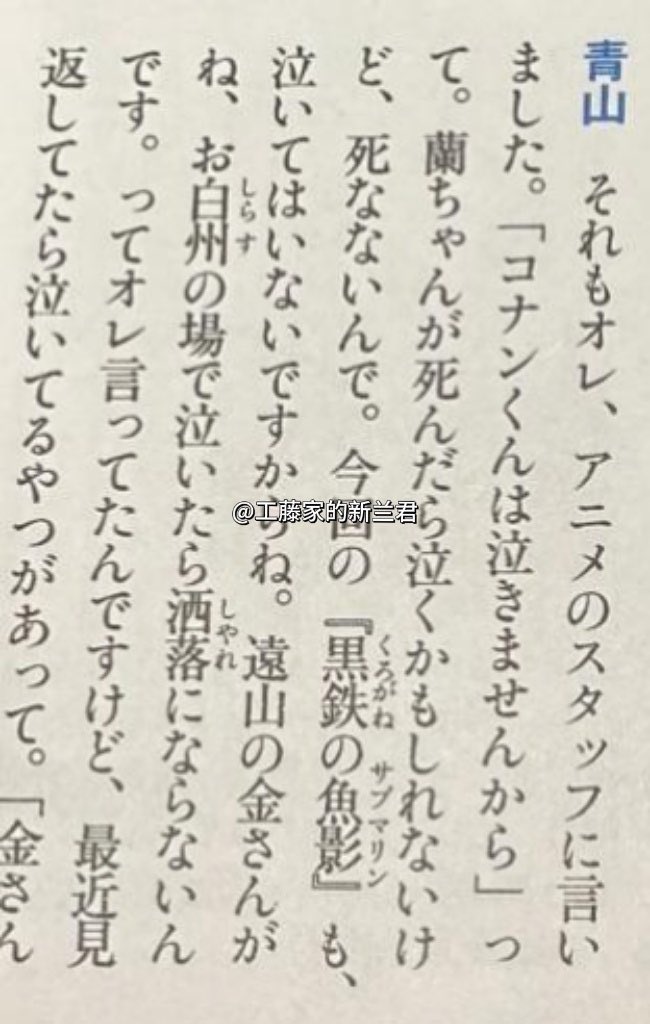 青山　それもオレ、アニメのスタッフに言い
ました。「コナンくんは泣きませんから」っ
て。蘭ちゃんが死んだら泣くかもしれないけ
ど、死なないんで。今回の『黒鉄の魚影』も、
くろがね　サブマリン
泣いてはいないですからね。遠山の金さんが
ね、お白州の場で泣いたら洒落にならないん
しらす　しゃれ
です。ってオレ言ってたんですけど、最近見
返してたら泣いてるやつがあって。「金さん
@工藤家的新兰君